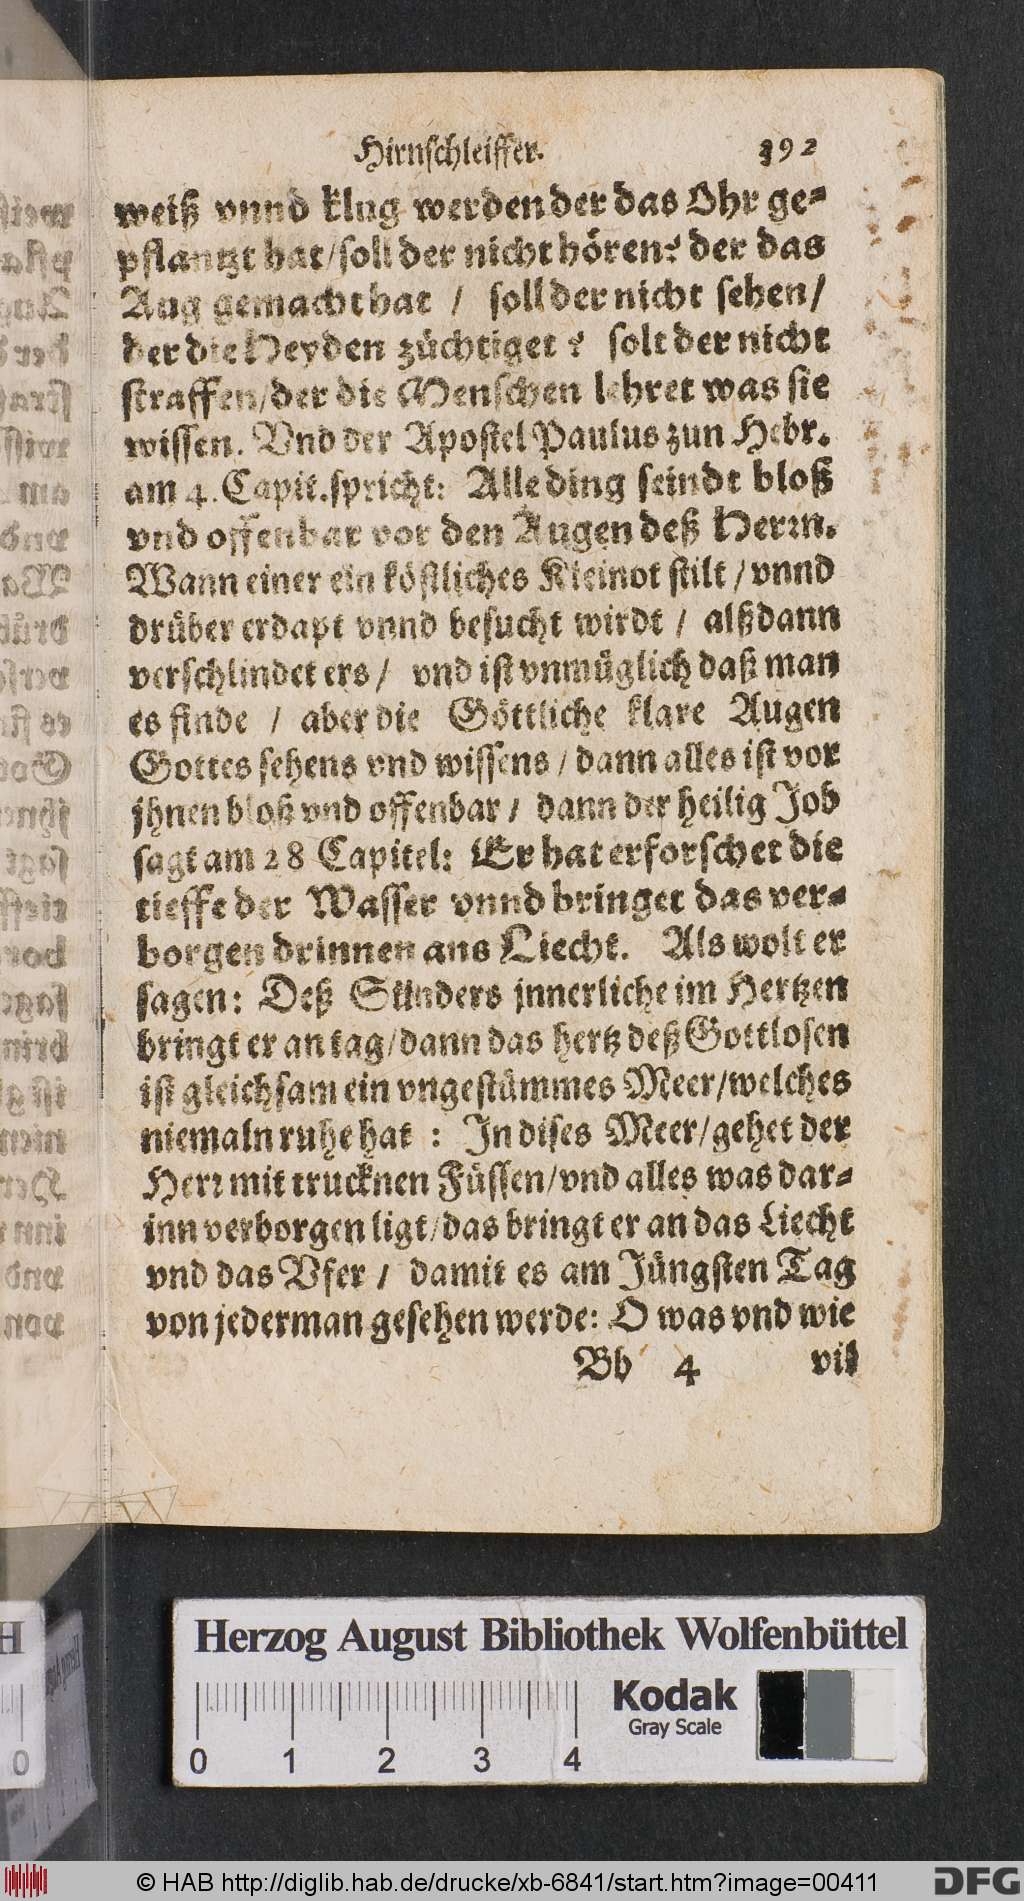 Hirnſchleiffer. 392
weiß vnnd klug werden der das Ohr ge⸗
pflantzt hat / ſoll der nicht hören? der das
Aug gemacht hat / ſoll der nicht ſehen /
der die Heyden züchtiget? ſolt der nicht
ſtraffen / der die Menſchen lehret was ſie
wiſſen. Vnd der Apoſtel Paulus zun Hebr.
am 4. Capit. ſpricht: Alle ding ſeindt bloß
vnd offenbar vor den Augen deß Herꝛn.
Wann einer ein köſtliches Kleinot ſtilt / vnnd
drüber erdapt vnnd beſucht wirdt / alßdann
verſchlindet ers / vnd iſt vnmüglich daß man
es finde / aber die Göttliche klare Augen
Gottes ſehens vnd wiſſens / dann alles iſt vor
jhnen bloß vnd offenbar / dann der heilig Job
ſagt am 28 Capitel: Er hat erforſchet die
tieffe der Waſſer vnnd bringet das ver⸗
borgen drinnen ans Liecht. Als wolt er
ſagen: Deß Sünders jnnerliche im Hertzen
bringt er an tag / dann das hertz deß Gottloſen
iſt gleichſam ein vngeſtümmes Meer / welches
niemaln ruhe hat : In diſes Meer / gehet der
Herꝛ mit trucknen Füſſen / vnd alles was dar⸗
inn verborgen ligt / das bringt er an das Liecht
vnd das Vfer / damit es am Jüngſten Tag
von jederman geſehen werde: O was vnd wie
Bb 4 vil
Herzog August Bibliothek Wolfenbüttel
Kodak
Gray Scale
0 1 2 3 4
© HAB http://diglib.hab.de/drucke/xb-6841/start.htm?image=00411
DFG